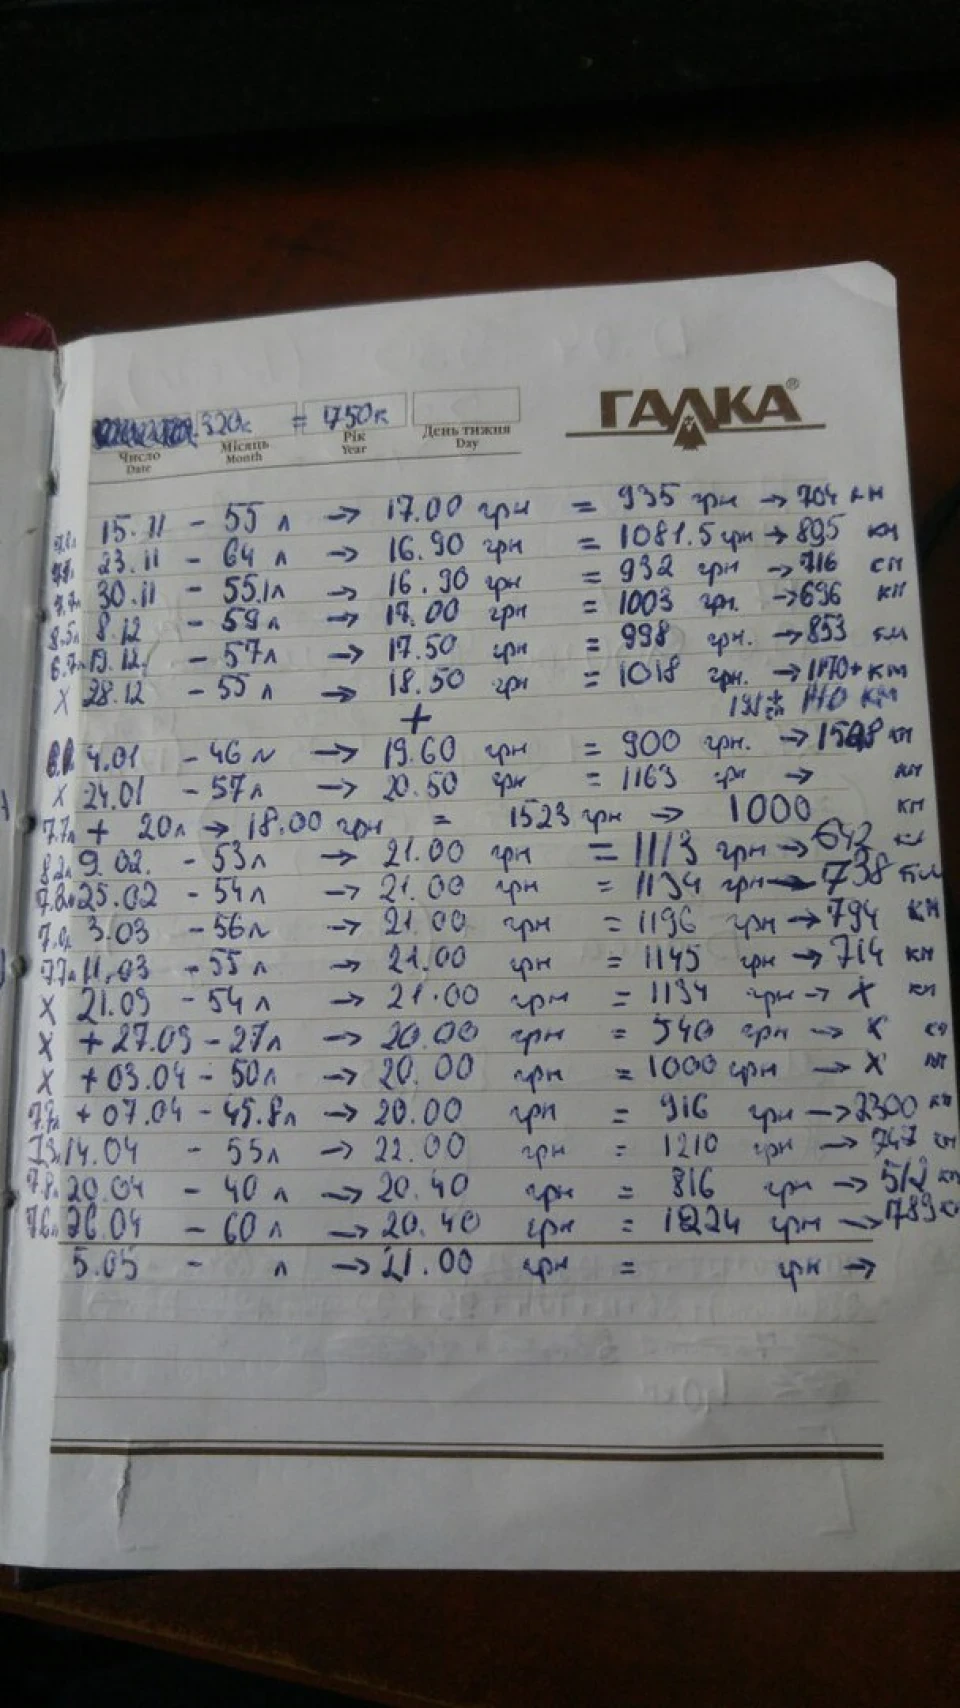 ГАЛКА®
320к = 750к
Число Місяць Рік День тижня
Date Month Year Day
15.11 - 55 л → 17.00 грн = 935 грн → 704 км
23.11 - 64 л → 16.90 грн = 1081.5 грн → 895 км
7.7л 30.11 - 55.1л → 16.90 грн = 932 грн → 716 км
8.5л 8.12 - 59л → 17.00 грн = 1003 грн. → 696 км
6.7л 19.12. - 57л → 17.50 грн = 998 грн. → 853 км
X 28.12 - 55 л → 18.50 грн = 1018 грн. → 1170+ км
+ 110 км
4.01 - 46 л → 19.60 грн = 900 грн. → км
X 24.01 - 57л → 20.50 грн = 1163 грн → км
7.7л + 20л → 18.00 грн = 1523 грн → 1000 км
8.2л 9.02. - 53л → 21.00 грн = 1113 грн → 642 км
25.02 - 54л → 21.00 грн = 1134 грн → 738 км
7.0л 3.03 - 56л → 21.00 грн = 1196 грн → 794 км
7.7л 11.03 - 55 л → 21.00 грн = 1145 грн → 714 км
X 21.03 - 54 л → 21.00 грн = 1134 грн → X км
X + 27.03 - 27л → 20.00 грн = 540 грн → X км
X + 03.04 - 50л → 20.00 грн = 1000 грн → X км
7.7л + 07.04 - 45.8л → 20.00 грн = 916 грн → 2300 км
14.04 - 55л → 22.00 грн = 1210 грн → 747 км
7.8л 20.04 - 40 л → 20.40 грн = 816 грн → 512 км
7.6л 26.04 - 60л → 20.40 грн = 1224 грн → 789 к
5.05 - л → 21.00 грн = грн →